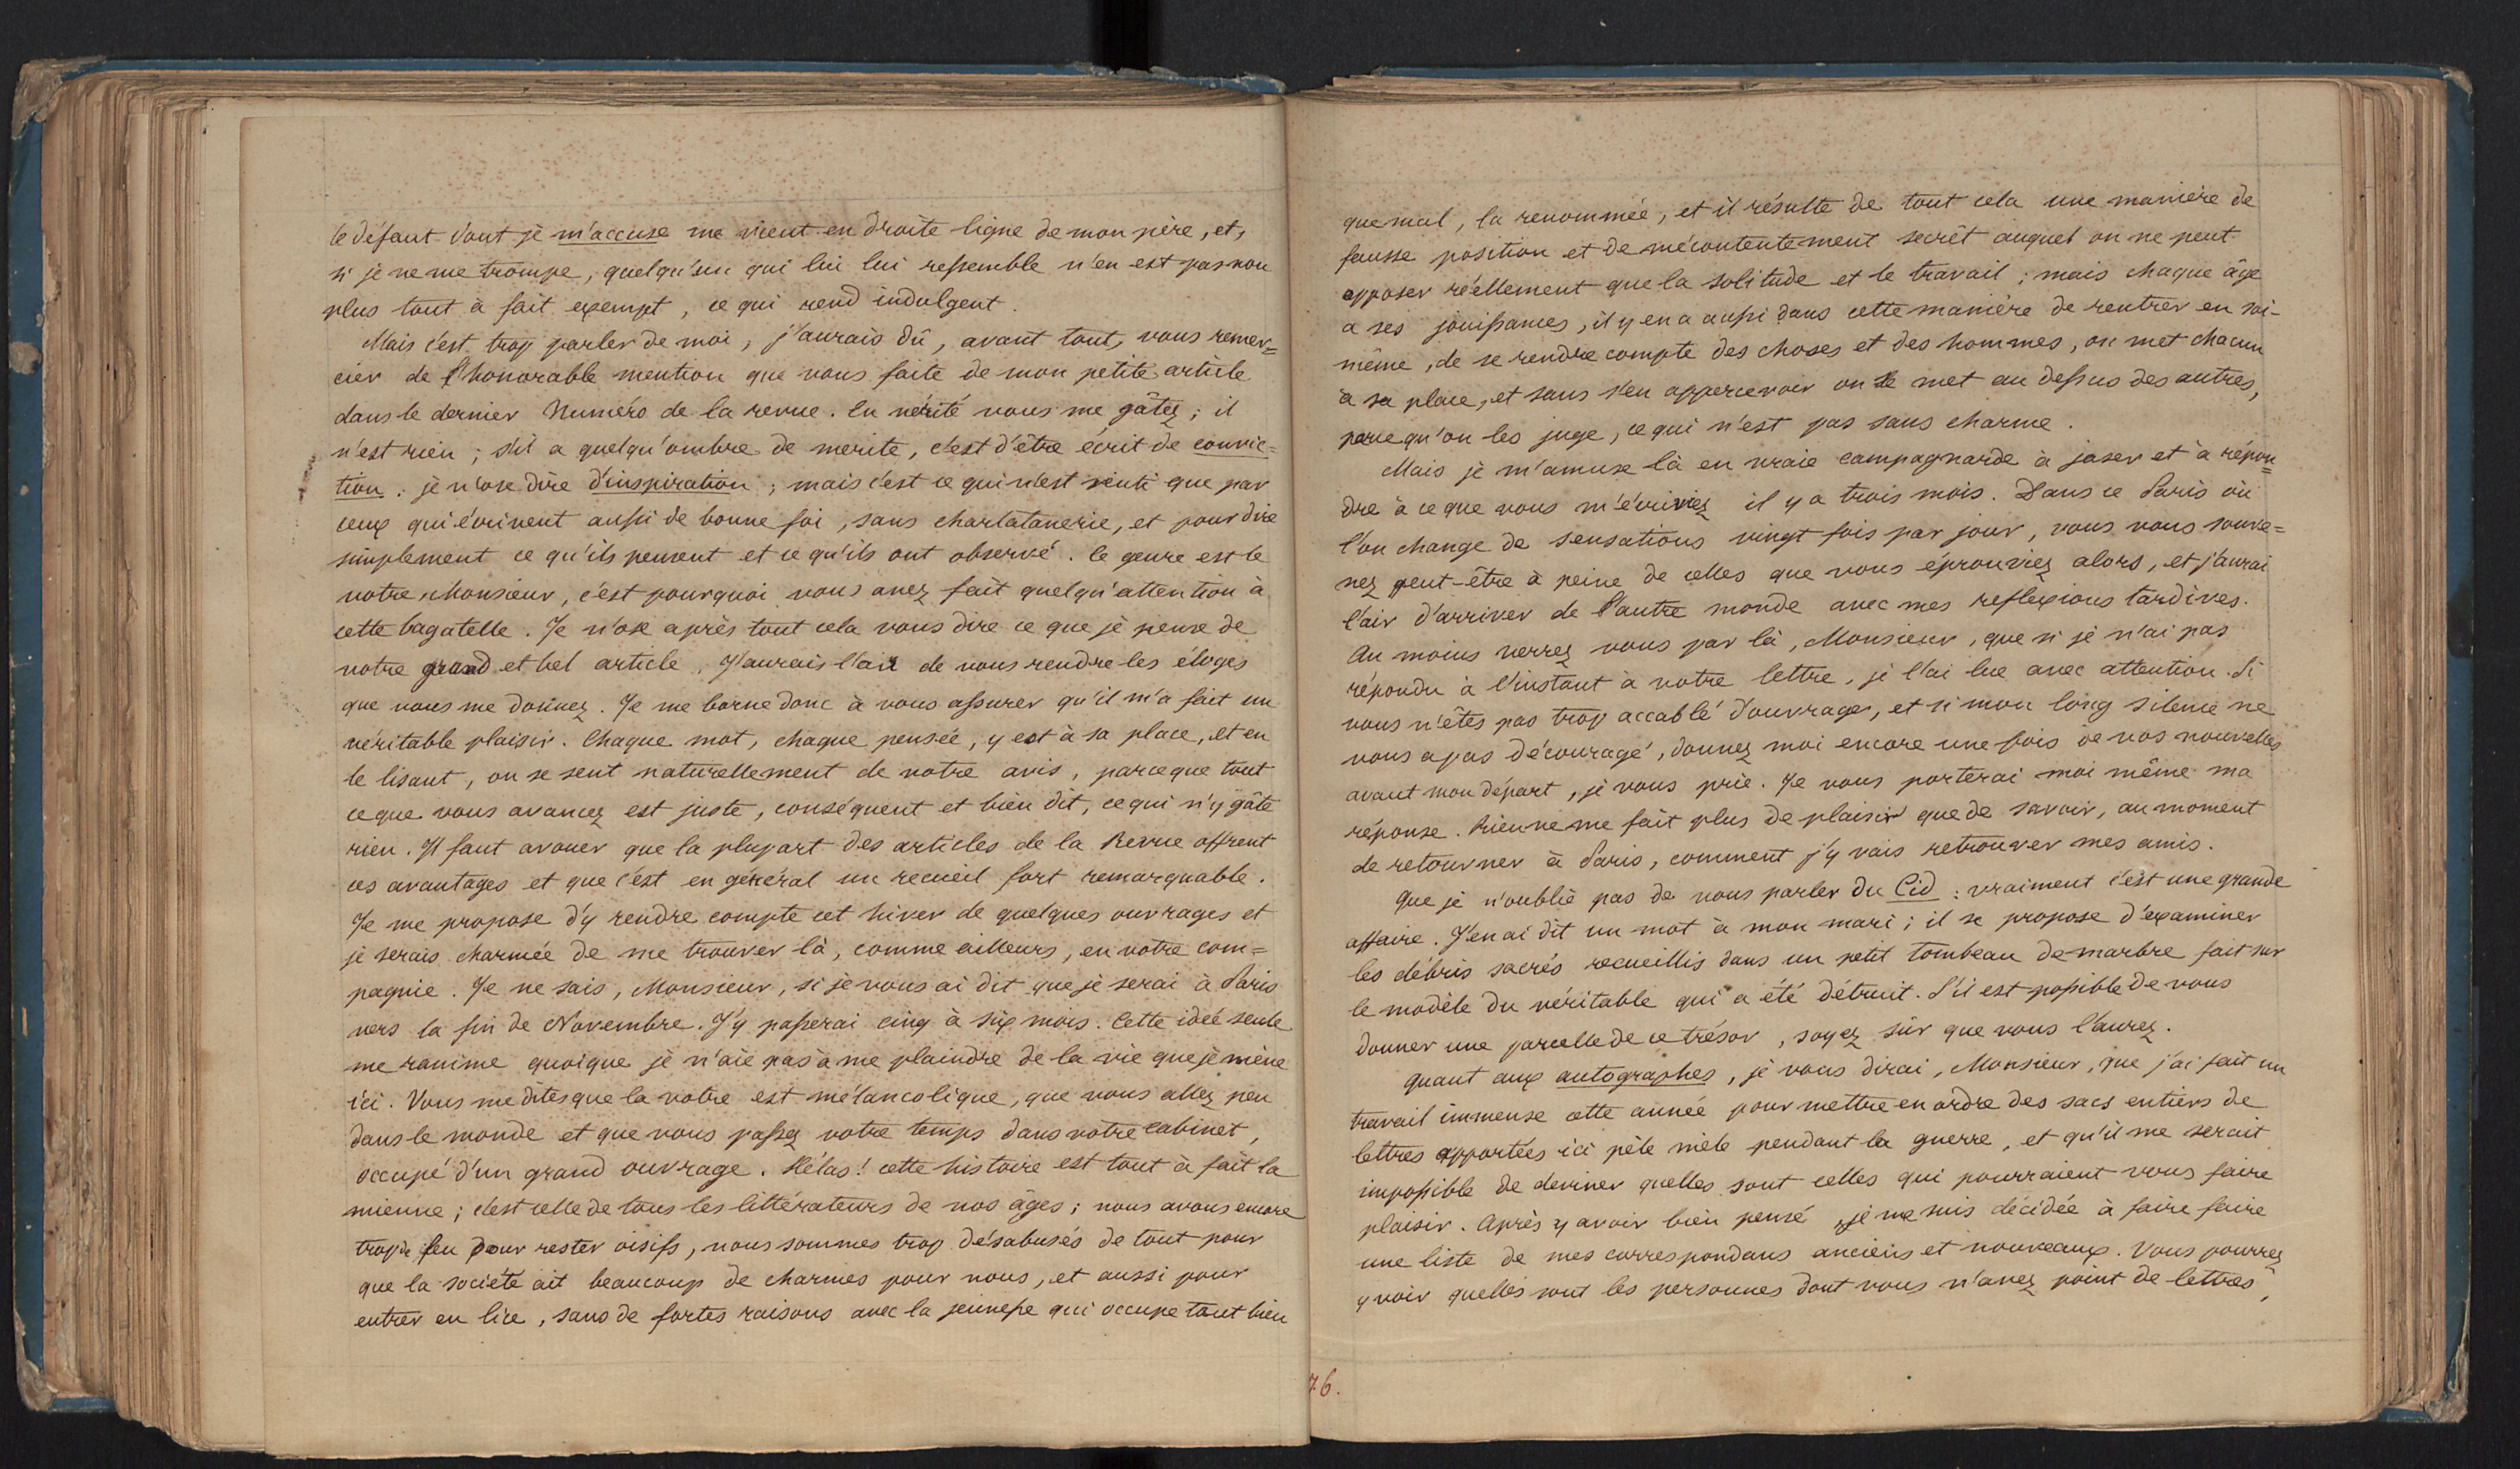 le défaut dont je m'accuse me vient en droite ligne de mon père, et,
si je ne me trompe, quelqu'un qui lui lui ressemble n'en est pas non
plus tout à fait exempt, ce qui rend indulgent.
Mais c'est trop parler de moi, j'aurais dû, avant tout, vous remer=
cier de l'honorable mention que vous faite de mon petite article
dans le dernier Numéro de la revue. En vérité vous me gâtez; il
n'est rien; s'il a quelqu'ombre de merite, c'est d'être écrit de convic=
tion: je n'ose dire d'inspiration; mais c'est ce qui n'est senti que par
ceux qui écrivent aussi de bonne foi, sans charlatanerie, et pour dire
simplement ce qu'ils pensent et ce qu'ils ont observé. Ce genre est le
votre, Monsieur, c'est pourquoi vous avez fait quelqu'attention à
cette bagatelle. Je n'ose après tout cela vous dire ce que je pense de
votre grand et bel article. J'aurais l'air de vous rendre les éloges
que vous me donnez. Je me borne donc à vous assurer qu'il m'a fait un
véritable plaisir. Chaque mot, chaque pensée, y est à sa place, et en
le lisant, on se sent naturellement de votre avis, parceque tout
ce que vous avancez est juste, conséquent et bien dit, ce qui n'y gâte
rien. Il faut avouer que la plupart des articles de la Revue offrent
ces avantages et que c'est en général un recueil fort remarquable.
Je me propose d'y rendre compte cet hiver de quelques ouvrages et
je serais charmée de me trouver là, comme ailleurs, en votre com=
pagnie. Je ne sais, Monsieur, si je vous ai dit que je serai à Paris
vers la fin de Novembre. J'y passerai cinq à six mois. Cette idée seule
me ranime quoique je n'aie pas à me plaindre de la vie que je mène
ici. Vous me dites que la votre est mélancolique, que vous allez peu
dans le monde et que vous passez votre temps dans votre cabinet,
occupé d'un grand ouvrage. Hélas! cette histoire est tout à fait la
mienne; c'est celle de tous les littérateurs de nos âges; nous avons encore
trop de feu pour rester oisifs, nous sommes trop désabusés de tout pour
que la société ait beaucoup de charmes pour nous, et aussi pour
entrer en lice, sans de fortes raisons avec la jeunesse qui occupe tout bien
que mal, la renommée, et il résulte de tout cela une manière de
fausse position et de mécontentement secrêt auquel on ne peut
opposer réellement que la solitude et le travail; mais chaque âge
a ses jouissances, il y en a aussi dans cette manière de rentrer en soi-
même, de se rendre compte des choses et des hommes, on met chacun
à sa place, et sans s'en appercevoir on se met au dessus des autres,
parcequ'on les juge, ce qui n'est pas sans charme.
Mais je m'amuse là en vraie campagnarde à jaser et à répon=
dre à ce que vous m'écriviez il y a trois mois. Dans ce Paris où
l'on change de sensations vingt fois par jour, vous vous souve=
nez peut-être à peine de celles que vous éprouviez alors, et j'aurai
l'air d'arriver de l'autre monde avec mes reflexions tardives.
Au moins verrez vous par là, Monsieur, que si je n'ai pas
répondu à l'instant à votre lettre, je l'ai lue avec attention. Si
vous n'êtes pas trop accablé d'ouvrage, et si mon long silence ne
vous a pas découragé, donnez moi encore une fois de vos nouvelles
avant mon départ, je vous prie. Je vous porterai moi même ma
réponse. Rien ne me fait plus de plaisir que de savoir, au moment
de retourner à Paris, comment j'y vais retrouver mes amis.
Que je n'oublie pas de vous parler du Cid: vraiment c'est une grande
affaire. J'en ai dit un mot à mon mari; il se propose d'examiner
les débris sacrés recueillis dans un petit tombeau de marbre fait sur
le modèle du véritable qui a été détruit. S'il est possible de vous
donner une parcelle de ce trésor, soyez sûr que vous l'aurez.
Quant aux autographes, je vous dirai, Monsieur, que j'ai fait un
travail immense cette année pour mettre en ordre des sacs entiers de
lettres apportées ici pèle mèle pendant la guerre, et qu'il me serait
impossible de deviner quelles sont celles qui pourraient vous faire
plaisir. Après y avoir bien pensé, je me suis décidée à faire faire
une liste de mes correspondans anciens et nouveaux. Vous pourrez
y voir quelles sont les personnes dont vous n'avez point de lettres,
76.